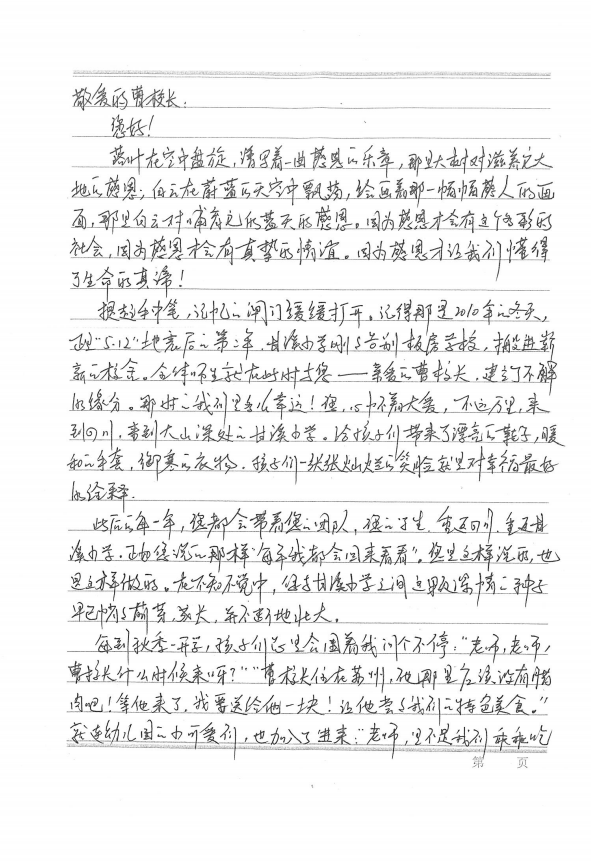 敬爱的曹校长：
您好！
落叶在空中盘旋，谱写着一曲感恩的乐章，那是大树对滋养它大
地的感恩；白云在蔚蓝的天空中飘荡，绘画着那一幅幅感人的画
面，那是白云对哺育它的蓝天的感恩。因为感恩才会有这个多彩的
社会，因为感恩才会有真挚的情谊。因为感恩才让我们懂得
了生命的真谛！
提起手中笔，记忆的闸门缓缓打开。记得那是2010年的冬天，
正是"5·12"地震后的第二年，甘溪小学刚刚告别板房学校，搬进崭
新的校舍。全体师生就在此时与您——亲爱的曹校长，建立了不解
的缘分。那时的我们是多么幸运！您，心中不着大爱，不远万里，来
到四川，来到大山深处的甘溪小学。给孩子们带来了漂亮的鞋子，暖
和的手套，御寒的衣物。孩子们一张张灿烂的笑脸就是对幸福最好
的诠释。
此后的每一年，您都会带着您的团队，您的学生，重返四川，重返甘
溪小学。正如您说的那样"每年我都会回来看看"。您是这样说的，也
是这样做的。在不知不觉中，您与甘溪小学之间这段深情的种子
早已悄悄萌芽、成长，并不断地壮大。
每到秋季一开学，孩子们总是会围着我问个不停："老师，老师，
曹校长什么时候来呀？""曹校长住在苏州，他那里应该没有腊
肉吧！等他来了，我要送给他一块！让他尝尝我们的特色美食。"
就连幼儿园的小可爱们，也加入了进来："老师，是不是我们乖乖吃
第 页